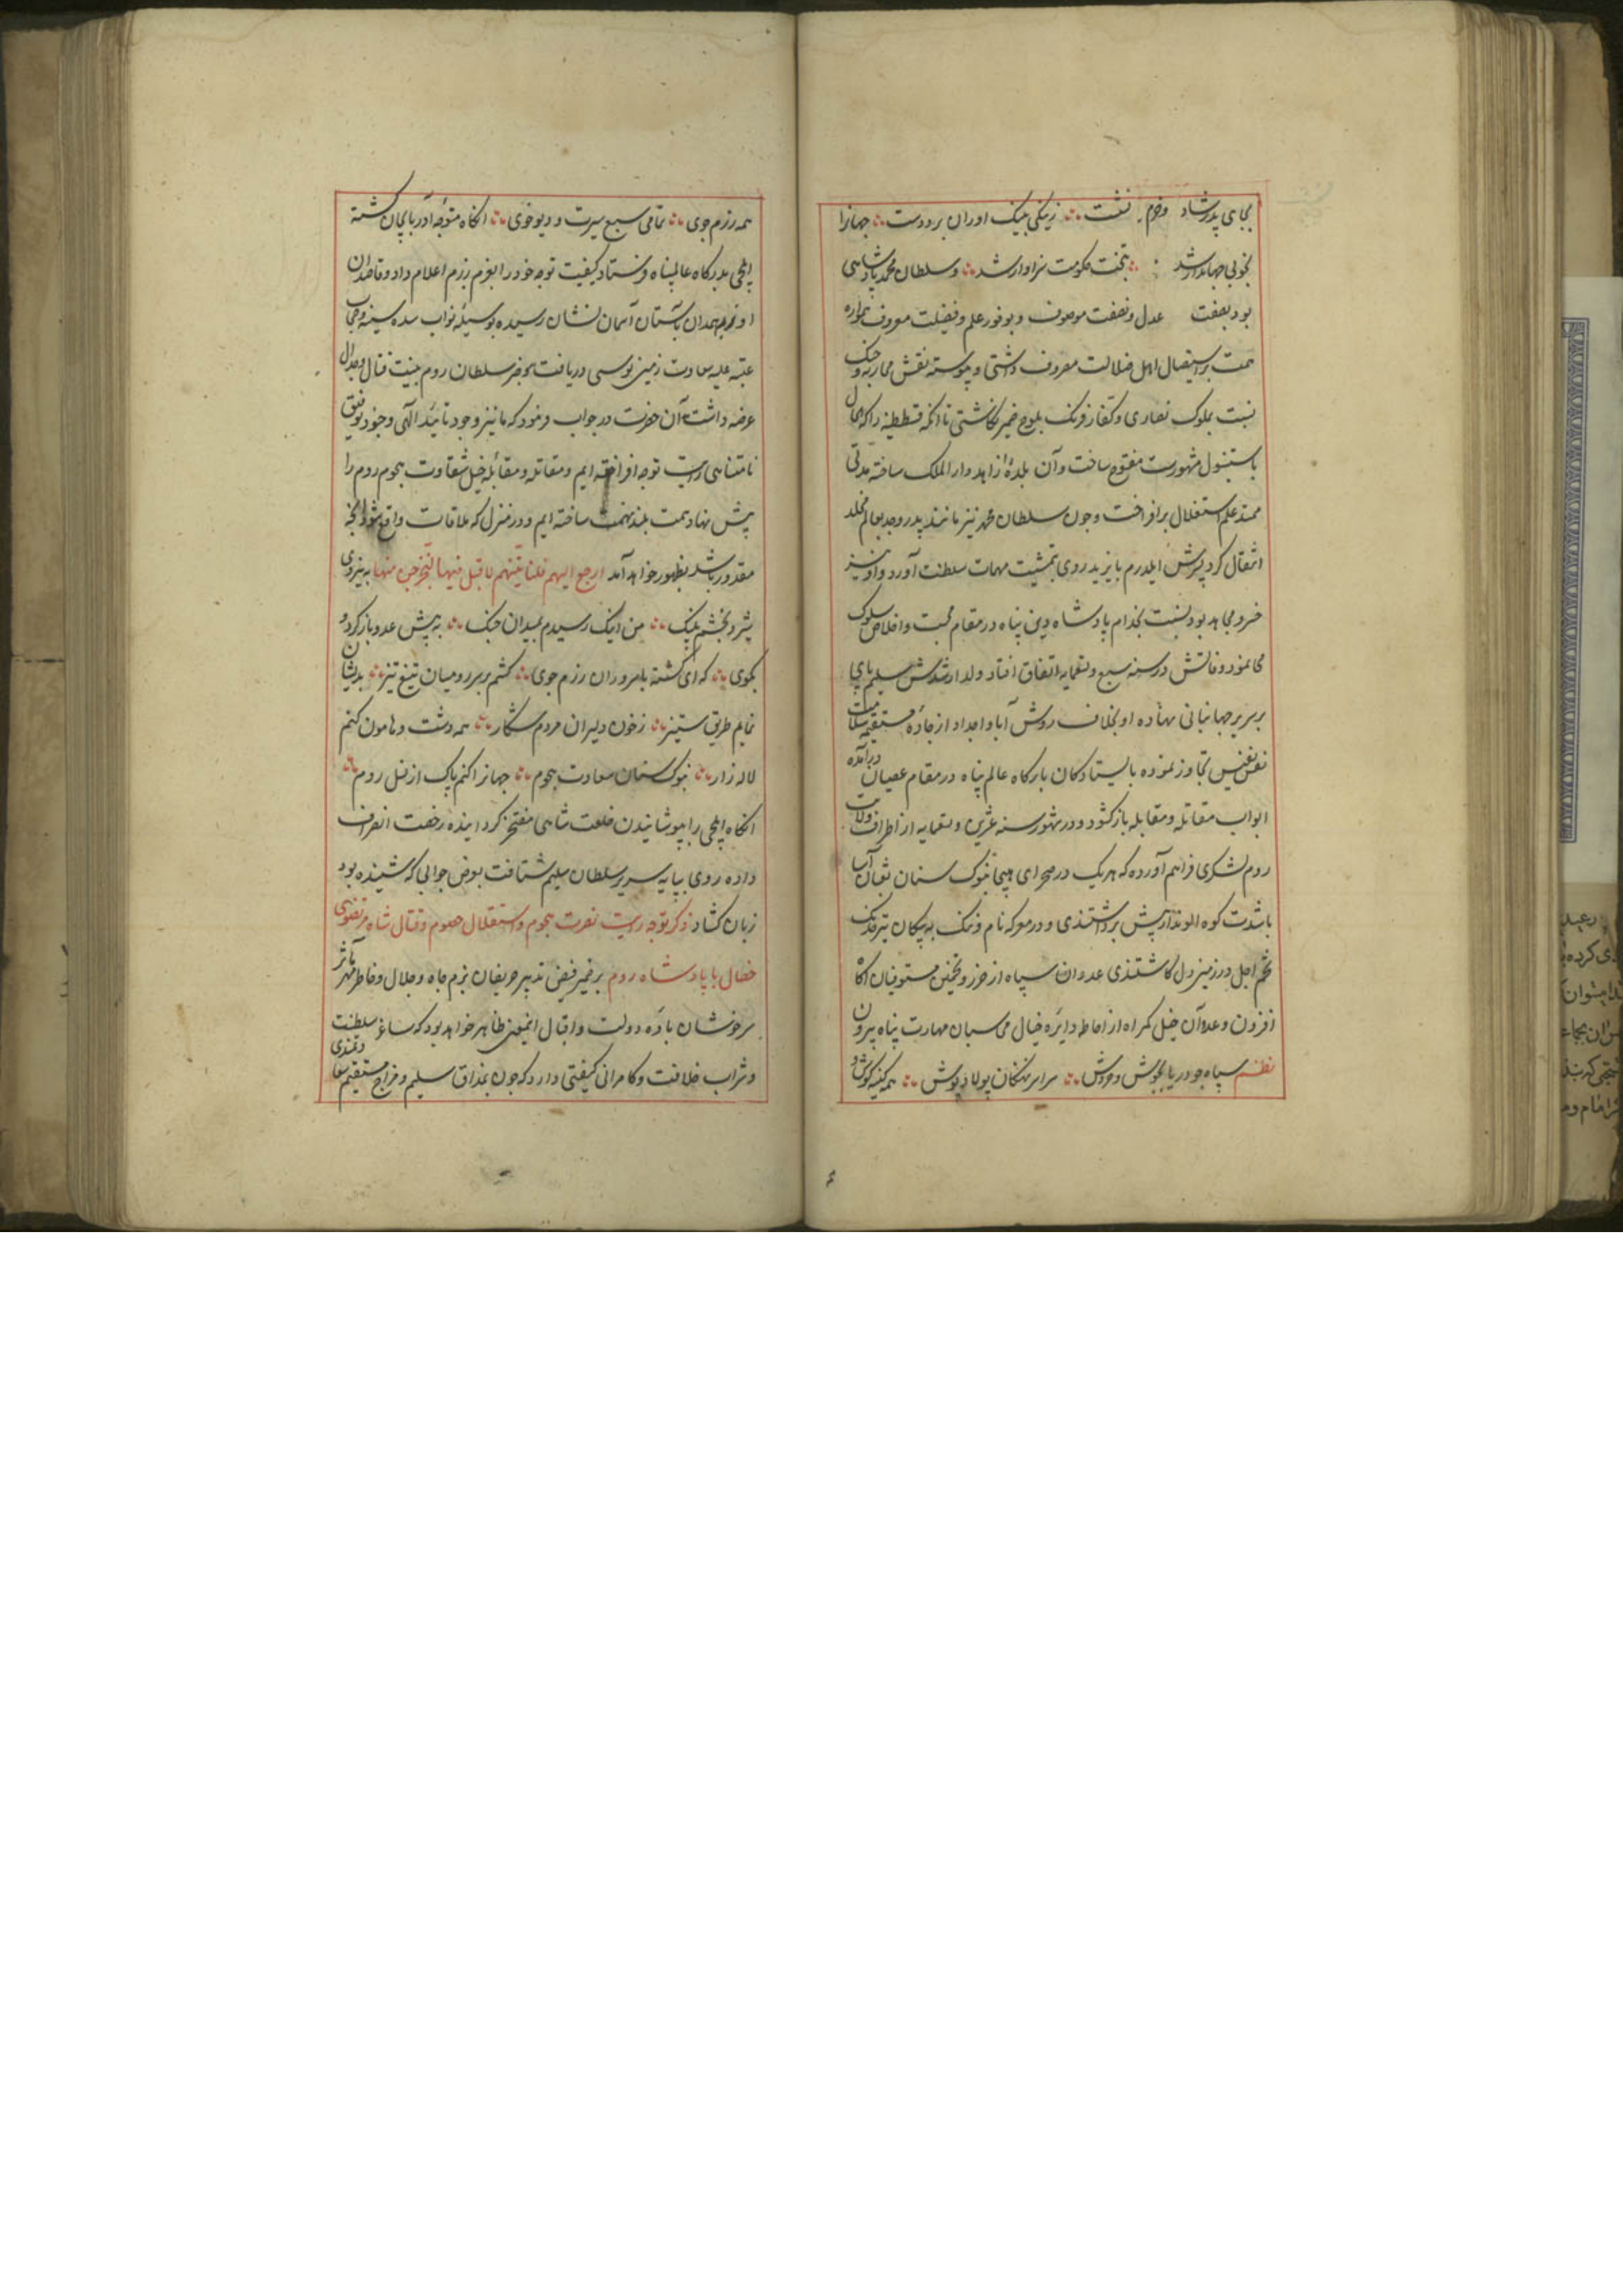 بجای پدر شاد و خرم نشست ∴ زنیکی بنیک اوران بر دو دست ∴ جهانرا
بخوبی جهاندار شد ∴ بتخت حکومت سزاوار شد ∴ و سلطان محمد پادشاهی
بود بصفت عدل و نصفت موصوف و بوفور علم و فضیلت معروف همواره
همت بر استیصال اهل ضلالت مصروف داشتی و پیوسته نقش محاربه و جنک
نسبت بملوک نصاری و کفار فرنک بلوح ضمیر نکاشتی تا انکه قسطنطنیه را که بحال
باستنبول مشهورست مفتوح ساخت و آن بلده را دار الملک ساخته مدتی
ممتد علم استقلال برافراخت و چون سلطان محمد نیز مانند پدر و جد بعالم مخلد
انتقال کرد پسرش ایلدرم بایزید روی بتمشیت مهمات سلطنت آورد و او نیز
خسرو مجاهد بود و نسبت بخدام پادشاه دین پناه در مقام محبت و اخلاص سلوک
می نمود و فاتش در سنه سبع و تسعمایه اتفاق افتاد و ولد ارشدش سلیم پای
بر سریر جهانبانی نهاده او بخلاف روش آبا و اجداد از جاده مستقیم سلامت
نفس نفیس تجاوز نموده با ایستادکان بارکاه عالم پناه در مقام عصیان درآمده
ابواب مقاتله و مقابله باز کشود و در شهور سنه عشرین و تسعمایه از اطراف ولایت
روم لشکری فراهم آورده که هر یک در صحرای هیجا بنوک سنان ثعبان آسا
باشدت کوه الوند از پیش برداشتندی و در معرکه نام و ننک به پیکان تیر خدنک
تخم اجل در زمین دل کاشتندی عدد ان سپاه از حرز و تخمین مستوفیان اکاه
افزون و عده آن خیل کمراه از احاطه دایره خیال محاسبان مهارت پناه بیرون
نظم سپاه چو دریا بجوش و خروش ∴ سراسر نهنکان پولاد پوش ∴ همه کینه کوش و
همه رزم جوی ∴ تمامی سبع سیرت و دیو خوی ∴ انکاه متوجه اذربایجان کشته
ایلچی بدرکاه عالمپناه فرستاد کیفیت توجه خود را بعزم رزم اعلام داد و قاصدان
او بآستان آسمان نشان رسیده بوسیله نواب سده سنیه و حجاب
عتبه علیه سعادت زمین بوسی دریافت سلطان روم بنیت قتال و جدال
عرضه داشت آن حضرت در جواب فرمود که ما نیز وجود تائید الهی و جنود توفیق
نامتناهی رایت توجه افراخته ایم و مقاتله و مقابله خیل شقاوت هجوم روم را
پیش نهاد همت بلند نهمت ساخته ایم و در منزل که ملاقات واقع شود انچه
مقدور باشد بظهور خواهد آمد ارجع الیهم فلناتینهم لا قبل فیها لنخرجن منها به نیروی
شیر و بخشم پلنک ∴ من اینک رسیدم بمیدان جنک ∴ به پیش عدو باز کرد و
بکوی ∴ که ای کشته بامروران رزم جوی ∴ کشم بر سر رومیان تیغ تیز ∴ بدیشان
نمایم طریق ستیز ∴ زخون دلیران مردم شکار ∴ همه دشت و هامون کنم
لاله زار ∴ بنوک سنان سعادت هجوم ∴ جهانرا کنم پاک از نسل روم ∴
انکاه ایلچی را بپوشانیدن خلعت شاهی مفتخر کردانیده رخصت انصراف
داده روی بپایه سریر سلطان سلیم شتافت بعرض جوابی که شنیده بود
زبان کشاد ذکر توجه رایت نصرت هجوم و استقلال خصوم و قتال شاه مرتضوی
خصال با پادشاه روم بر ضمیر فیض تدبیر حریفان بزم جاه و جلال و خاطر مهر مآثر
سرخوشان باده دولت و اقبال اینمعنی ظاهر خواهد بود که ساغر سلطنت
و شراب خلافت و کامرانی کیفیتی دارد که چون بمذاق سلیم و مزاج مستقیم سعادتمندی